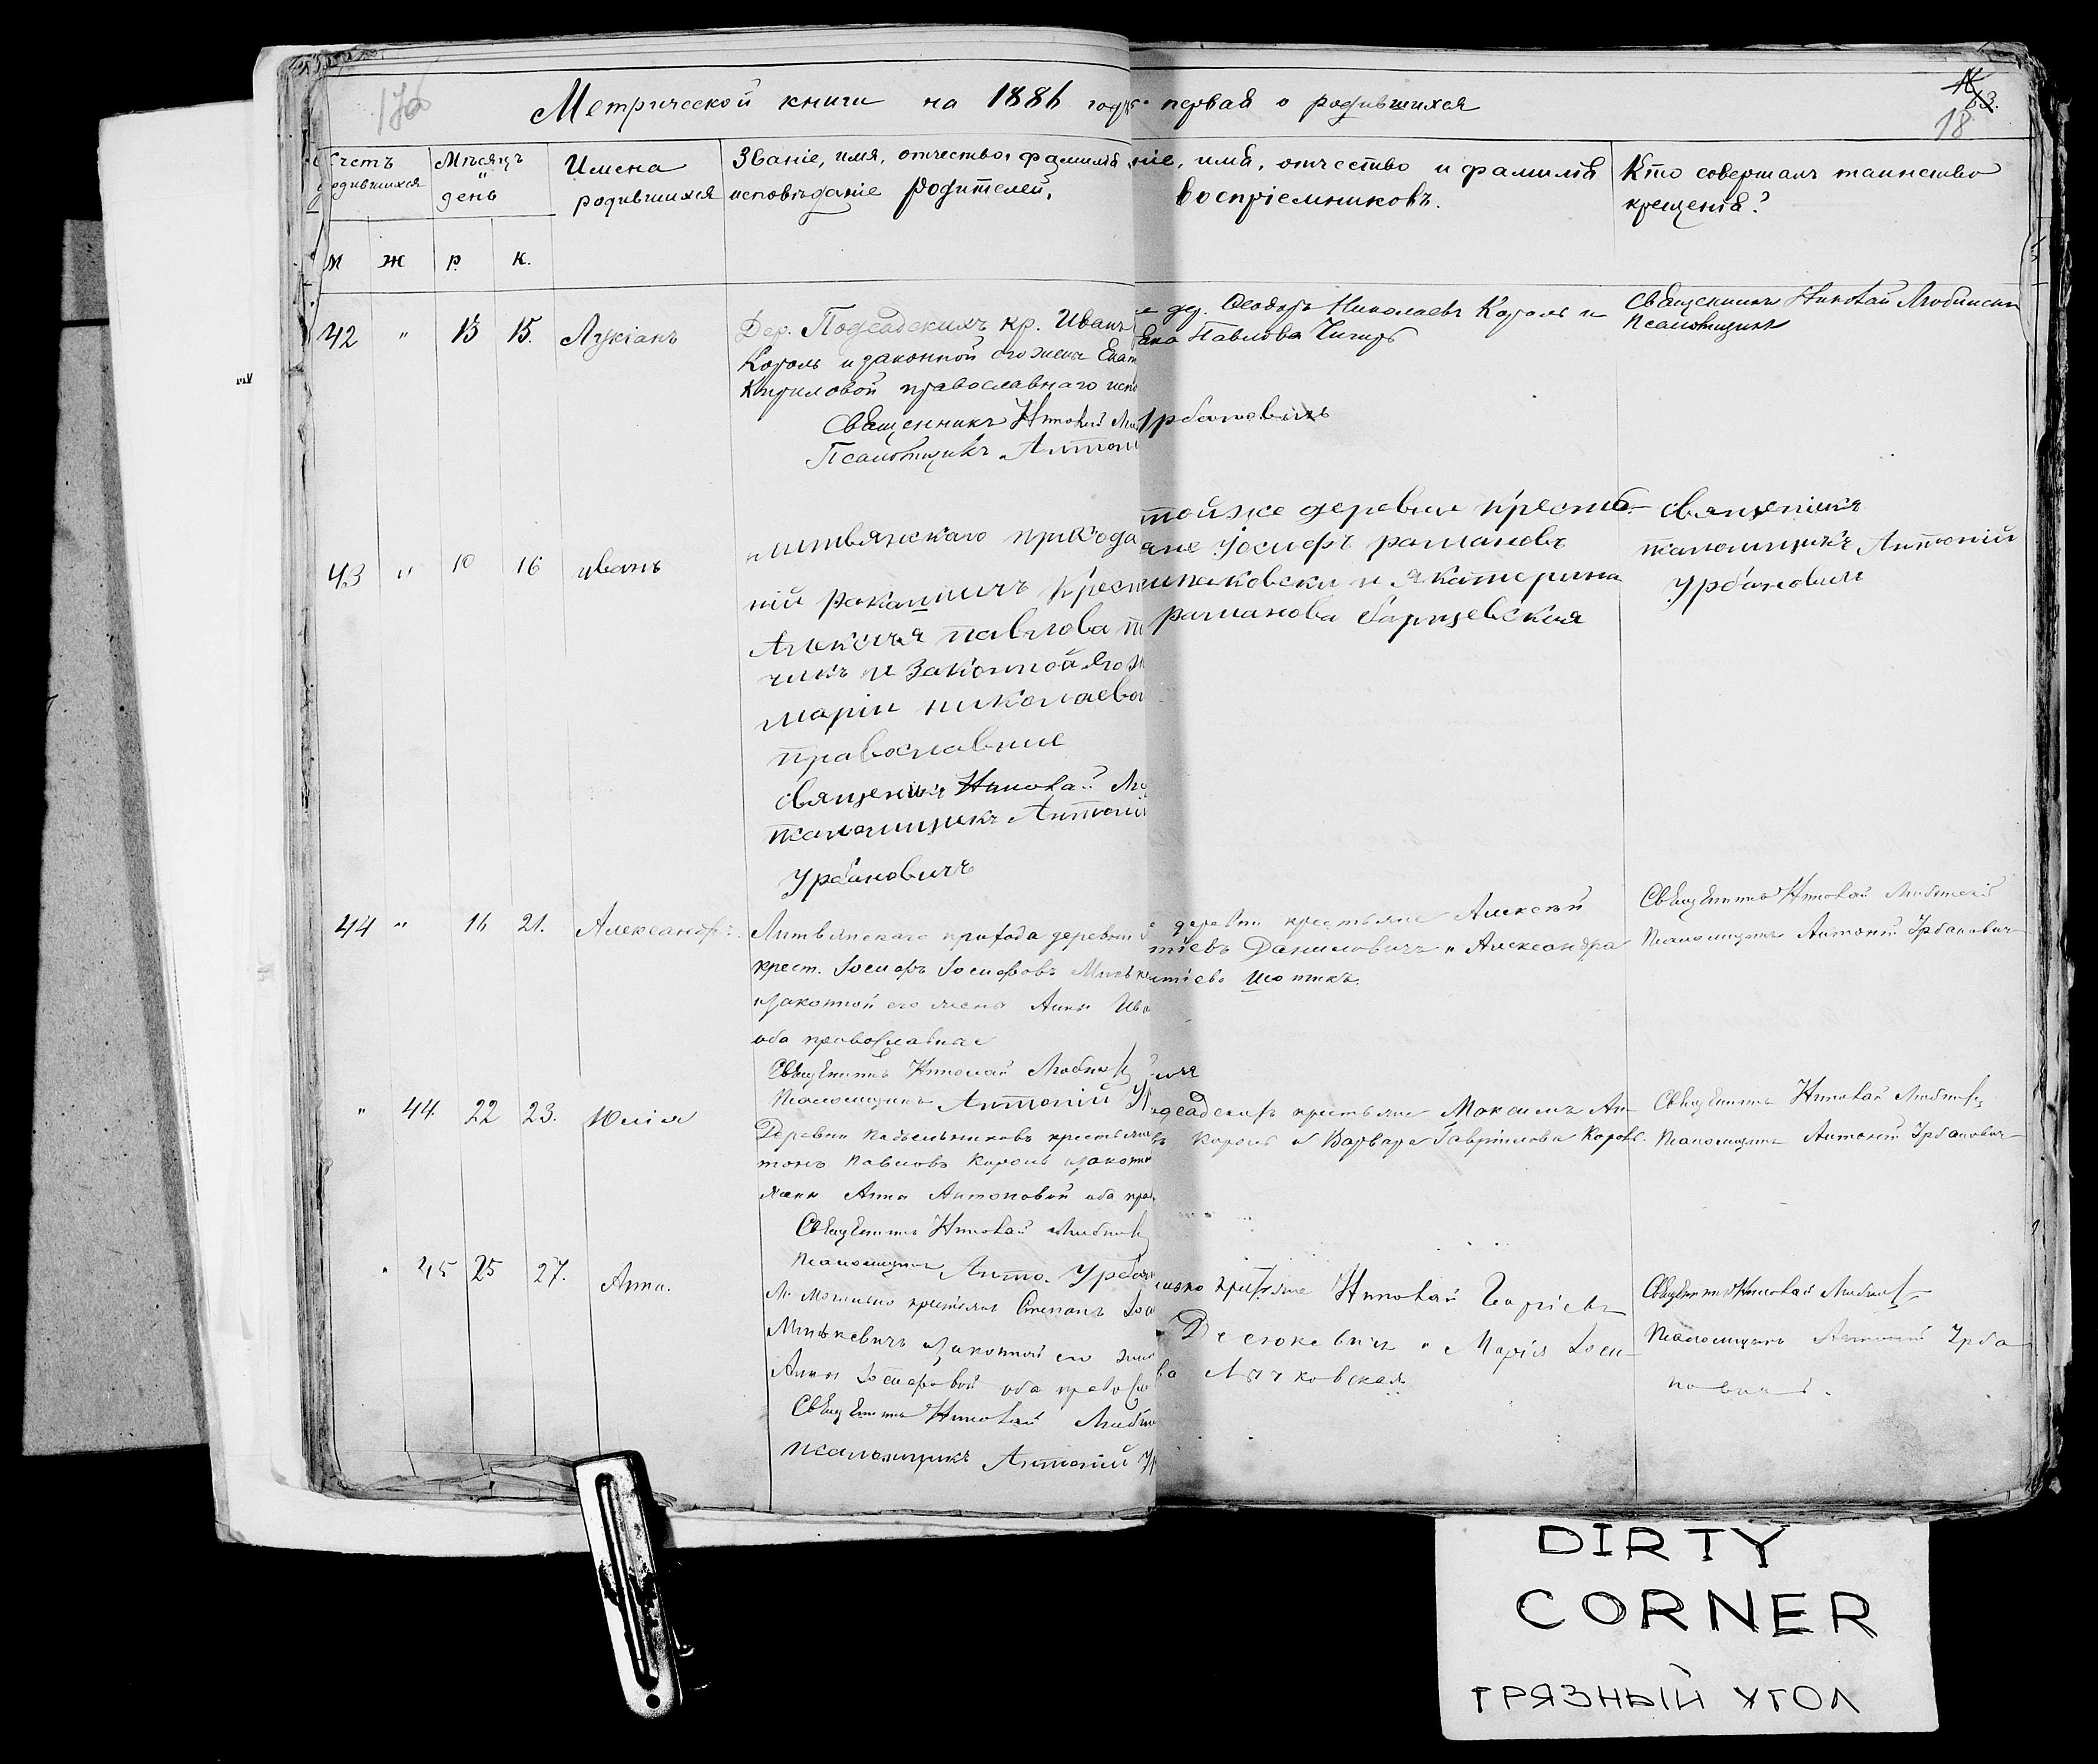 176
Метрической книги на 1886 годъ первая о родившихся
18
Счетъ родившихся
Мѣсяцъ и день
Имена родившихся
Званіе, имя, отчество, фамилія
исповѣданіе родителей.
ніе, имя, отчество и фамилія
воспріемниковъ.
Кто совершалъ таинство
крещенія?
м ж р. к.
42 " 13 15. Лукіанъ
Дер. Подсадскихъ кр. Иванъ
Король и законной его жены Екат
Кириловой православнаго испо
Священникъ Николай Лю
Псаломщикъ Антоні
дер. Ѳеодоръ Николаевъ Король и
Павлова Чигирь
Урбановичъ
Священникъ Николай Любинскій
Псаломщикъ
43 " 10 16 иванъ
литвянскаго прихода
Алексѣя павлова
чикъ и законной яго ж
маріи николаево
православние
священикъ Николай Лю
псаломщикъ Антоній
Урбановичъ
тойже деревни крестья-
ане Іосифъ рамановъ
и якатерина
раманова барщевская
священикъ
псаломщикъ Антоній
Урбановичъ
44 " 16 21. Александръ.
Литвянскаго прихода деревни
крест. Іосифъ Іосифовъ Миньк
и законной его жены Анны Ива
оба православная
Священникъ Николай Любинск
Псаломщикъ Антоній У
деревни крестьяне Алексѣй
Даниловичъ и Александра
Шотикъ.
Священникъ Николай Любинскій
Псаломщикъ Антоній Урбановичъ
" 44. 22 23. Юлія
Деревни Подсельниковъ крестьяне
тонъ Павловъ Король и законн
жены Анна Антоновой оба прав
Священникъ Николай Любинск
Псаломщикъ Анто. Урбан
крестьяне Максимъ Ан-
въ Король и Варвара Гавріилова Король.
Священникъ Николай Любинск
Псаломщикъ Антоній Урбановичъ
" 45 25 27. Анна.
М. Могильно крестьяне Степанъ Іос
Минькевичъ и законной его жены
Анны Іосифовой оба правосл
Священникъ Николай Любин
псаломщикъ Антоній У
крестьяне Николай
и Марія Іоси-
ва Лычковская.
Священникъ Николай Любинск
Псаломщикъ Антоній Урба
новичъ.
DIRTY
CORNER
ГРЯЗНЫЙ УГОЛ